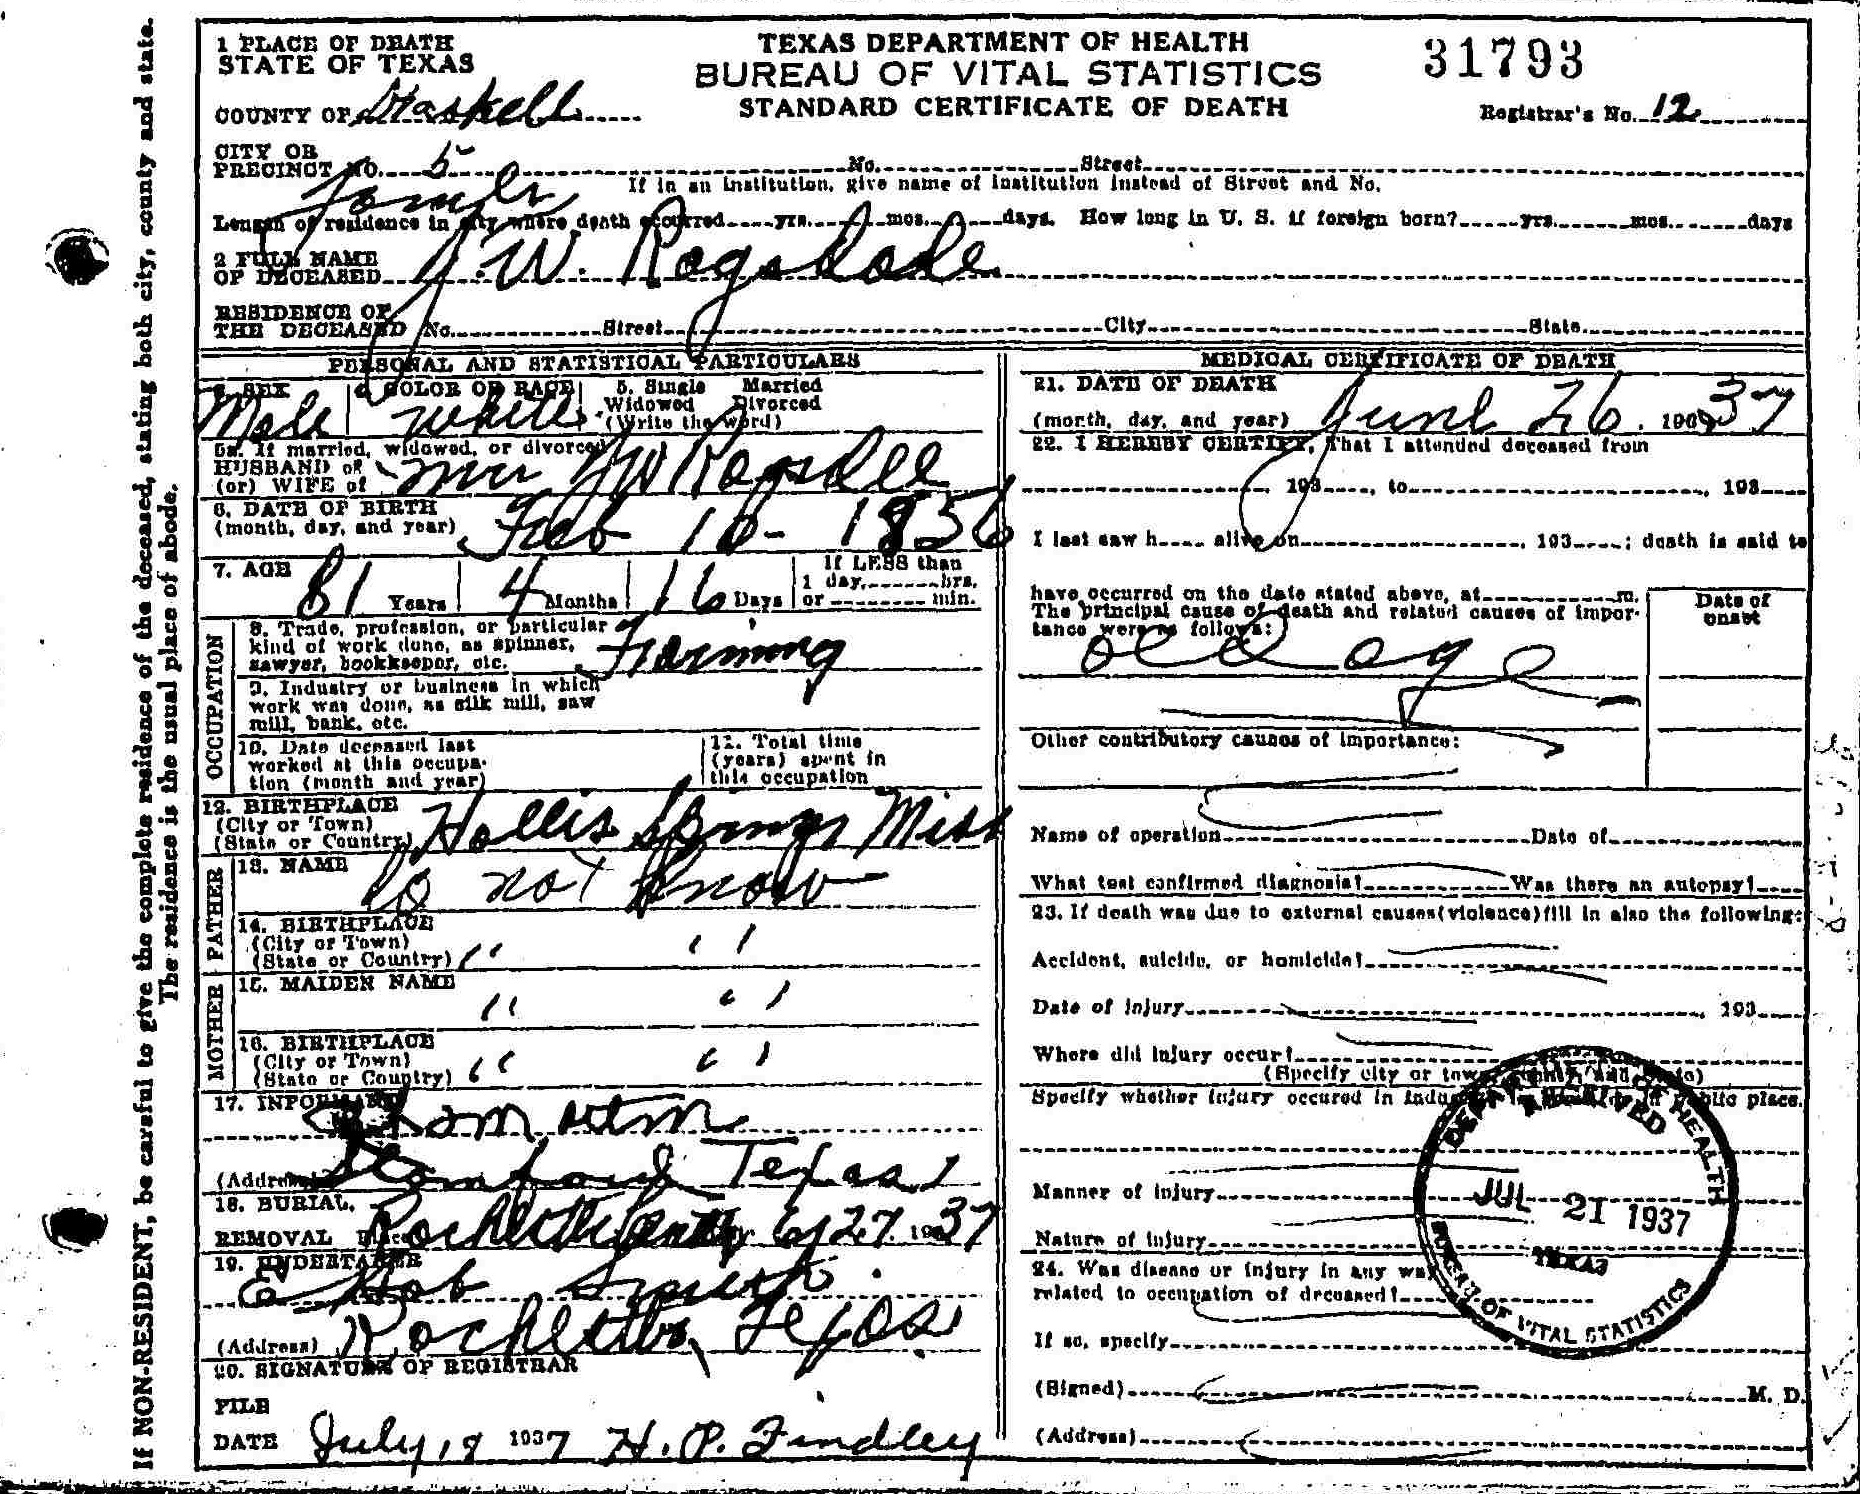 If NON-RESIDENT, be careful to give the complete residence of the deceased, stating both city, county and state.
The residence is the usual place of abode.
1 PLACE OF DEATH
STATE OF TEXAS
COUNTY OF Haskell
TEXAS DEPARTMENT OF HEALTH
BUREAU OF VITAL STATISTICS
STANDARD CERTIFICATE OF DEATH
31793
Registrar's No. 12
CITY OR
PRECINCT NO. 5 No. Street
If in an institution, give name of institution instead of Street and No.
Length of residence in city where death occurred yrs. mos. days. How long in U. S. if foreign born? yrs. mos. days
2 FULL NAME
OF DECEASED J. W. Ragsdale
RESIDENCE OF
THE DECEASED No. Street City State
PERSONAL AND STATISTICAL PARTICULARS
3. SEX Male
4. COLOR OR RACE White
5. Single Married
Widowed Divorced
(Write the word)
5a. If married, widowed, or divorced
HUSBAND of
(or) WIFE of J W Ragsdale
6. DATE OF BIRTH
(month, day, and year) Feb 10 - 1856
7. AGE 81 Years 4 Months 16 Days
If LESS than
1 day, hrs.
or min.
OCCUPATION
8. Trade, profession, or particular
kind of work done, as spinner,
sawyer, bookkeeper, etc. Farming
9. Industry or business in which
work was done, as silk mill, saw
mill, bank, etc.
10. Date deceased last
worked at this occupa-
tion (month and year)
11. Total time
(years) spent in
this occupation
12. BIRTHPLACE
(City or Town)
(State or Country) Hollis Springs Miss
FATHER
13. NAME Do not know
14. BIRTHPLACE
(City or Town)
(State or Country) " "
MOTHER
15. MAIDEN NAME " "
16. BIRTHPLACE
(City or Town)
(State or Country) " "
17. INFORMANT
(Address) Stamford Texas
18. BURIAL,
REMOVAL Place 6/27 1937
19. UNDERTAKER
Bob Smith
(Address) Rochester, Texas
20. SIGNATURE OF REGISTRAR
FILE
DATE July 18 1937 H. P. Findley
MEDICAL CERTIFICATE OF DEATH
21. DATE OF DEATH
(month, day, and year) June 26. 1937
22. I HEREBY CERTIFY, That I attended deceased from
, 193 , to , 193
I last saw h alive on , 193 ; death is said to
have occurred on the date stated above, at m.
The principal cause of death and related causes of impor-
tance were as follows:
Date of
onset
old age
Other contributory causes of importance:
Name of operation Date of
What test confirmed diagnosis? Was there an autopsy?
23. If death was due to external causes (violence) fill in also the following:
Accident, suicide, or homicide?
Date of injury , 193
Where did injury occur?
(Specify city or town, county, and state)
Specify whether injury occured in industry, in public place.
Manner of injury
Nature of injury
24. Was disease or injury in any way
related to occupation of deceased?
If so, specify
(Signed) M. D.
(Address)
DEPARTMENT OF HEALTH
RECEIVED
JUL 21 1937
TEXAS
BUREAU OF VITAL STATISTICS